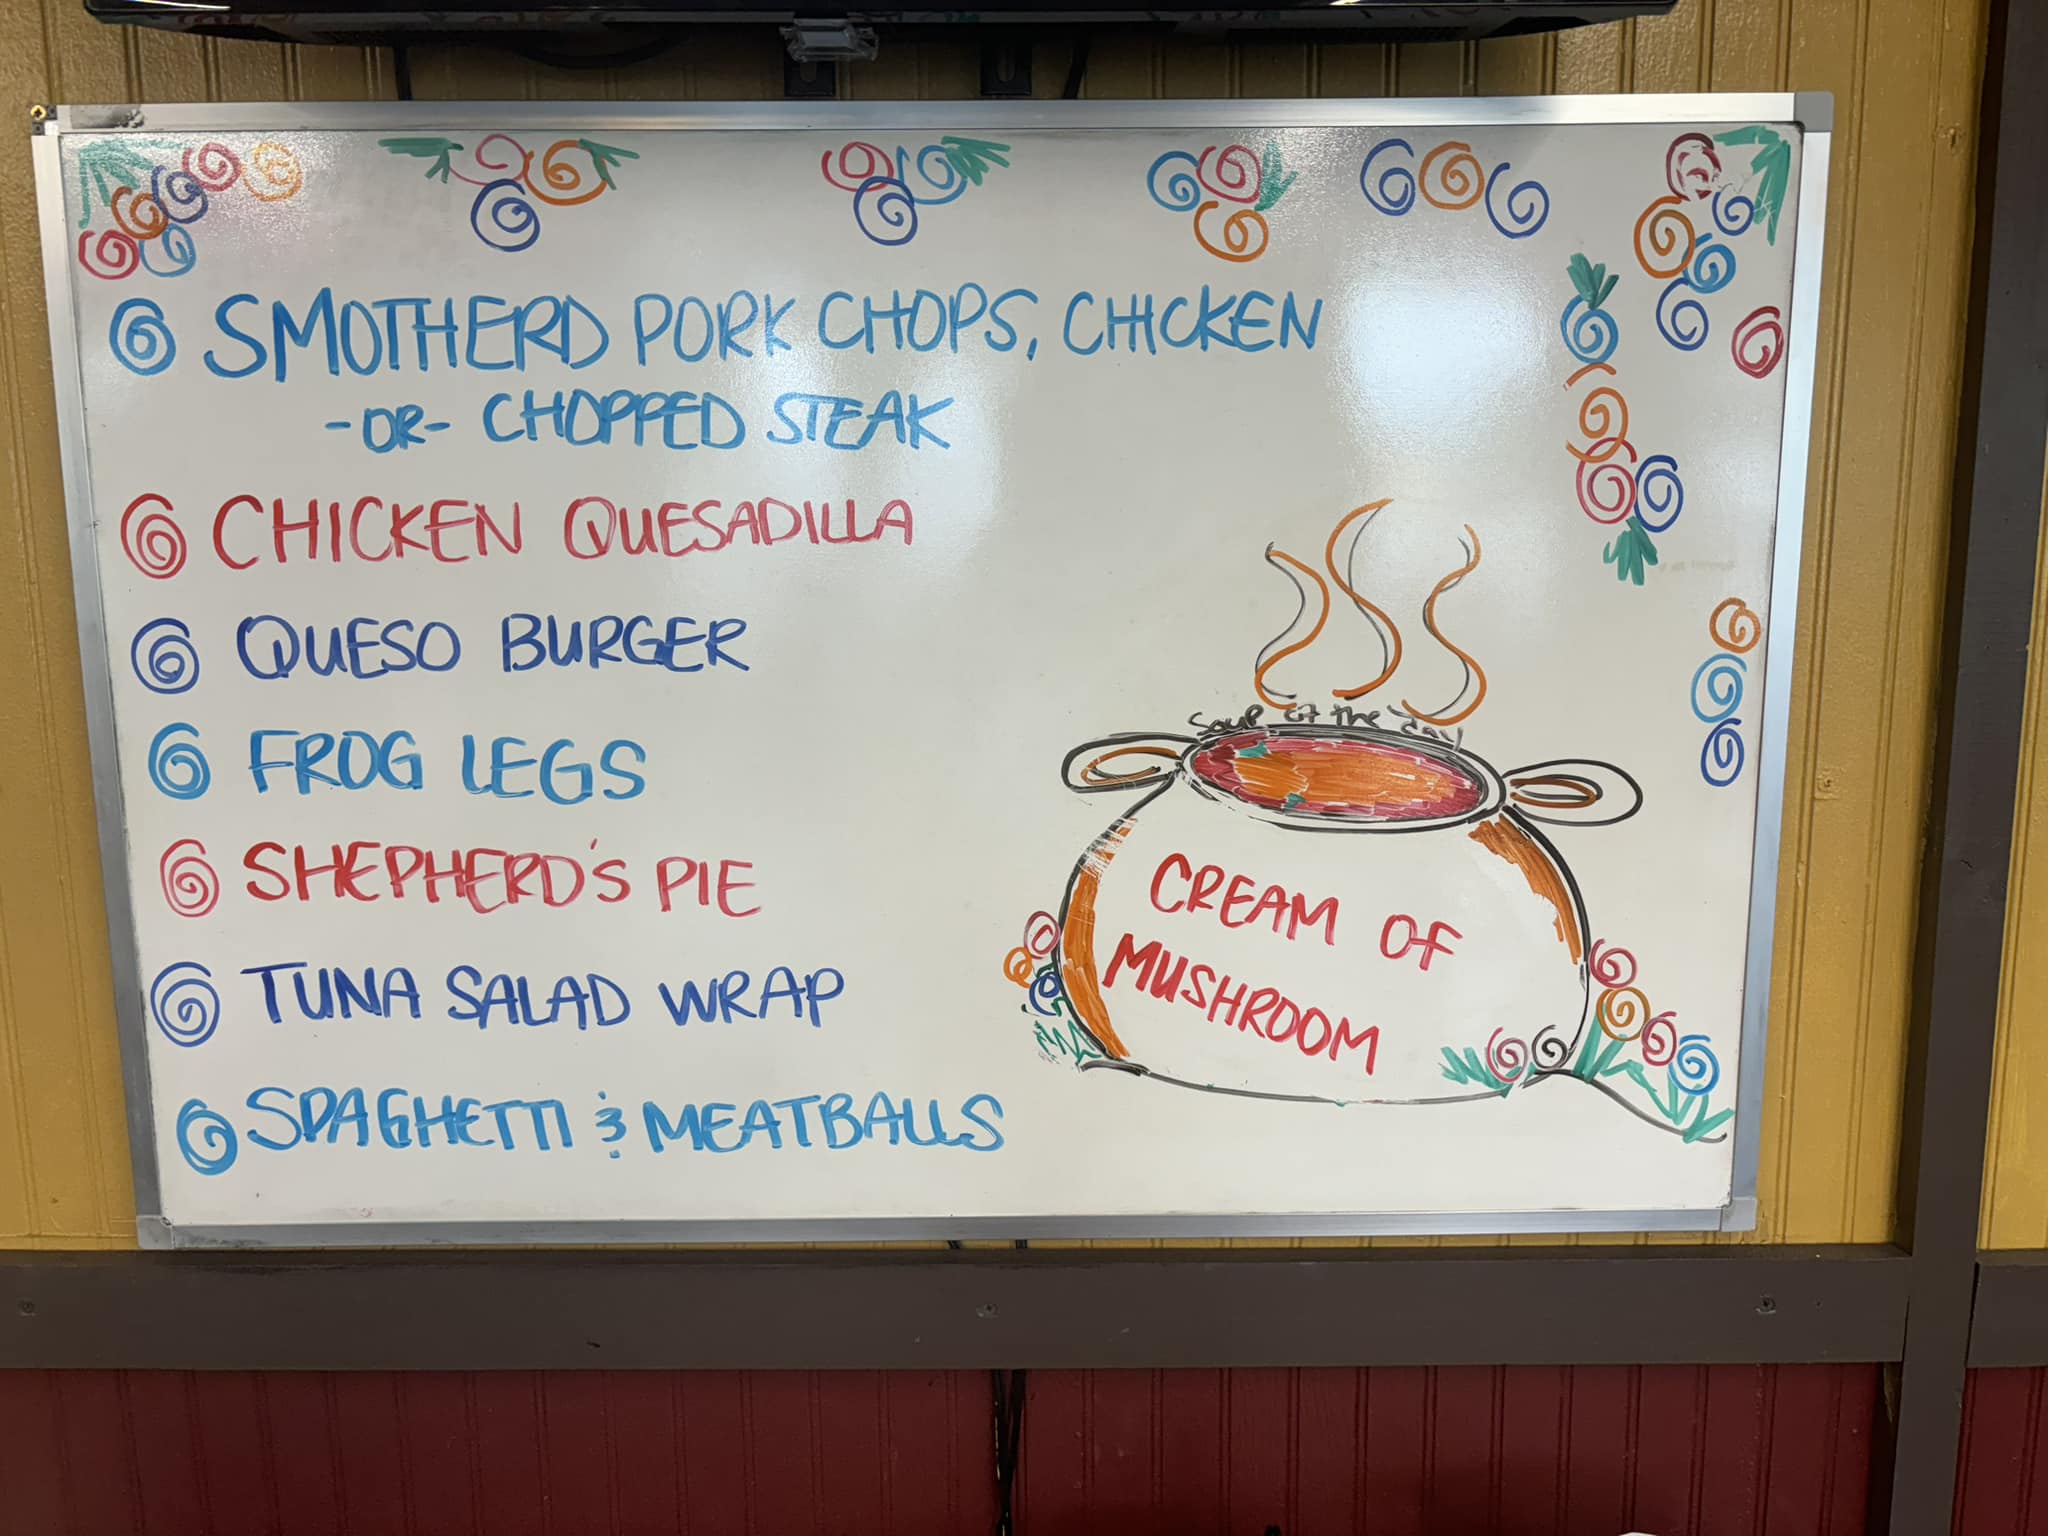 SMOTHERD PORK CHOPS, CHICKEN
-OR- CHOPPED STEAK
CHICKEN QUESADILLA
QUESO BURGER
FROG LEGS
SHEPHERD'S PIE
TUNA SALAD WRAP
SPAGHETTI & MEATBALLS
Soup of the Day
CREAM OF
MUSHROOM